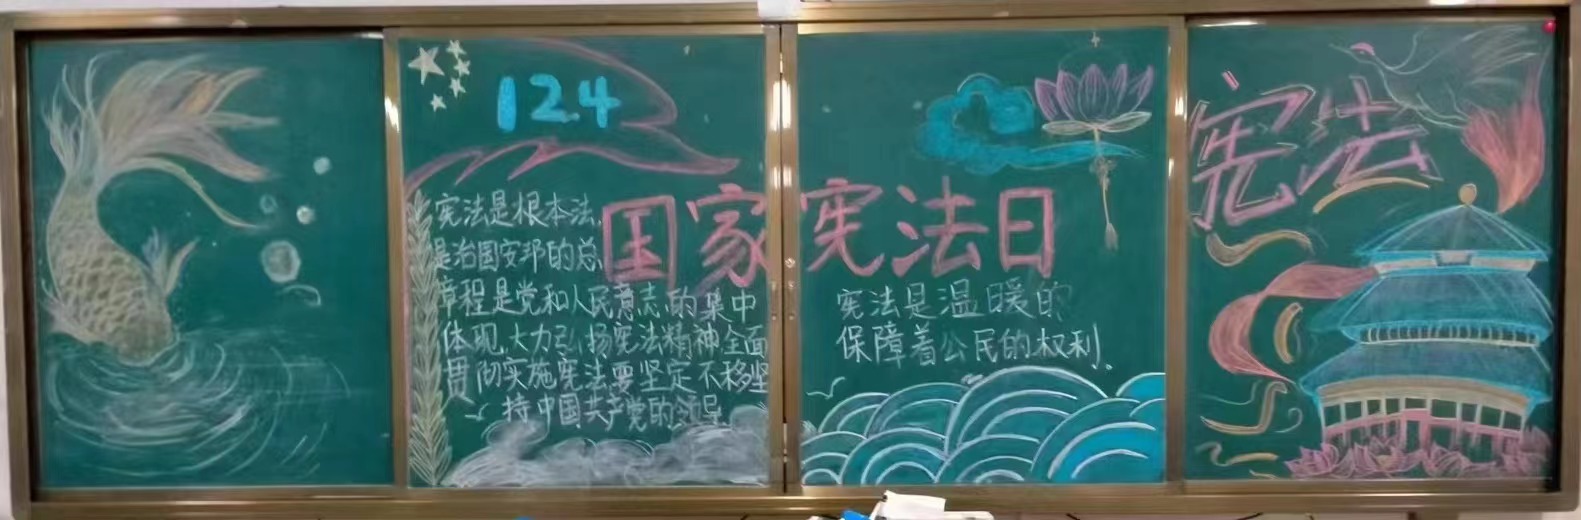 12.4
国家宪法日
宪法是根本法,
是治国安邦的总
章程是党和人民意志的集中
体现,大力弘扬宪法精神全面
贯彻实施宪法要坚定不移坚
持中国共产党的领导
宪法是温暖的
保障着公民的权利.
宪法